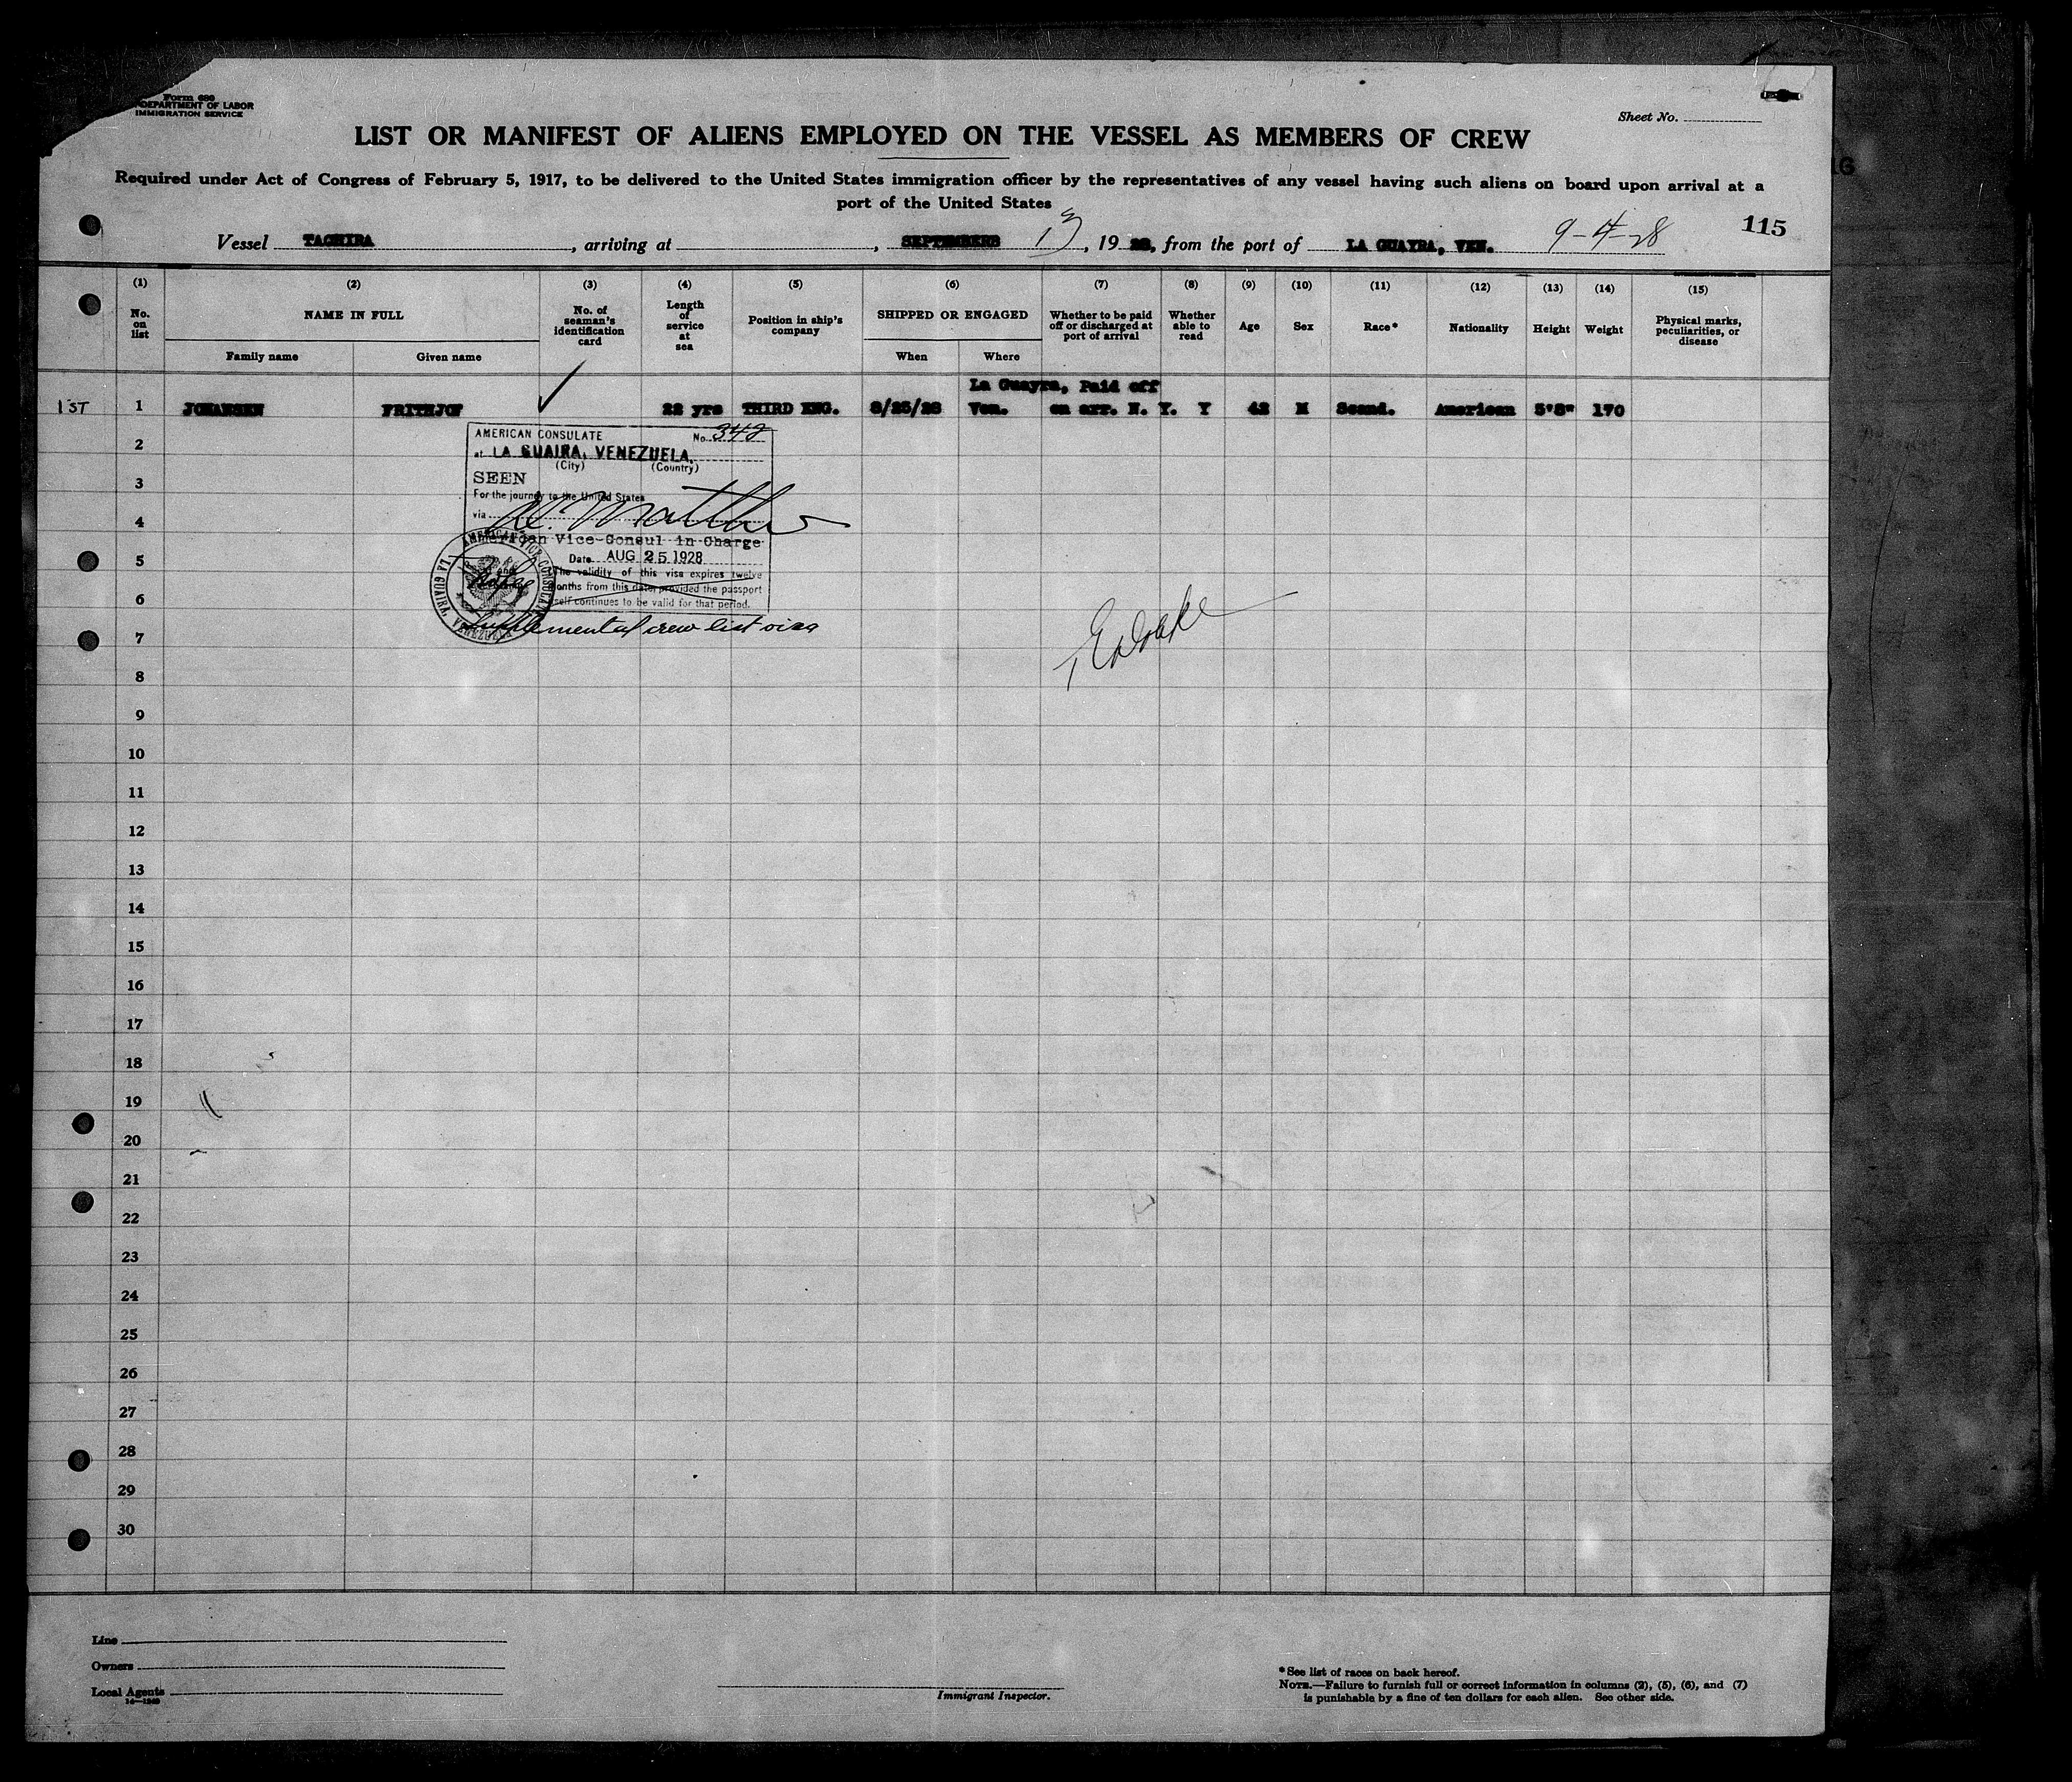 Form 689
DEPARTMENT OF LABOR
IMMIGRATION SERVICE
Sheet No.
LIST OR MANIFEST OF ALIENS EMPLOYED ON THE VESSEL AS MEMBERS OF CREW
Required under Act of Congress of February 5, 1917, to be delivered to the United States immigration officer by the representatives of any vessel having such aliens on board upon arrival at a
port of the United States
115
Vessel TACHIRA, arriving at , SEPTEMBER 13, 1928, from the port of LA GUAYRA, VEN. 9-4-28
(1) (2) (3) (4) (5) (6) (7) (8) (9) (10) (11) (12) (13) (14) (15)
No. on list NAME IN FULL No. of seaman's identification card Length of service at sea Position in ship's company SHIPPED OR ENGAGED Whether to be paid off or discharged at port of arrival Whether able to read Age Sex Race* Nationality Height Weight Physical marks, peculiarities, or disease
Family name Given name When Where
La Guayra, Paid off
1ST 1 JOHANSEN FRITHJOF 22 yrs THIRD ENG. 8/25/28 Ven. on arr. N. Y. Y 42 M Scand. American 5'8" 170
AMERICAN CONSULATE No. 342
at LA GUAIRA, VENEZUELA.
(City) (Country)
SEEN
For the journey to the United States
via
American Vice-Consul in Charge
Date AUG 25 1928
The validity of this visa expires twelve
months from this date, provided the passport
itself continues to be valid for that period.
AMERICAN VICE CONSULATE
LA GUAIRA, VENEZUELA
Supplemental crew list visa
2
3
4
5
6
7
8
9
10
11
12
13
14
15
16
17
18
19
20
21
22
23
24
25
26
27
28
29
30
Line
Owners
Local Agents
14—1240
Immigrant Inspector.
*See list of races on back hereof.
NOTE.—Failure to furnish full or correct information in columns (2), (5), (6), and (7)
is punishable by a fine of ten dollars for each alien. See other side.
16